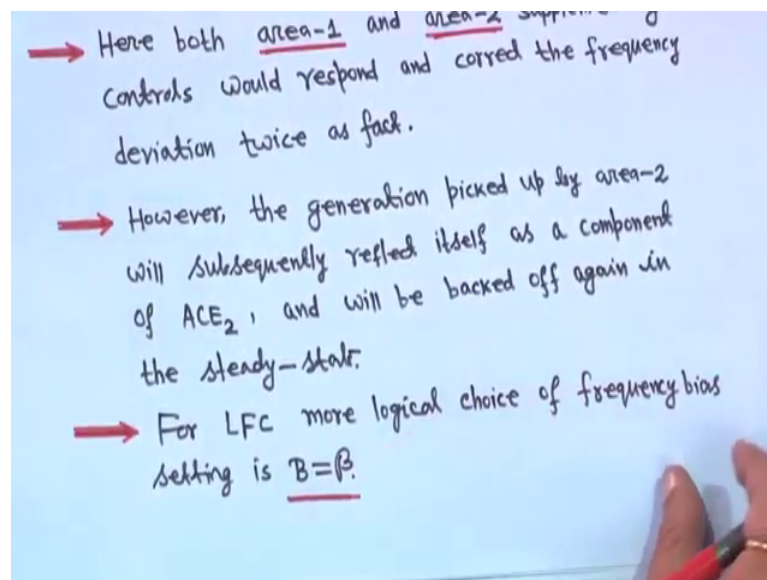 Here both area-1 and area-2
controls would respond and corred the frequency
deviation twice as fast.
However, the generation picked up by area-2
will subsequently refled itself as a component
of ACE₂, and will be backed off again in
the steady-state.
For LFC more logical choice of frequency bias
setting is B=β.